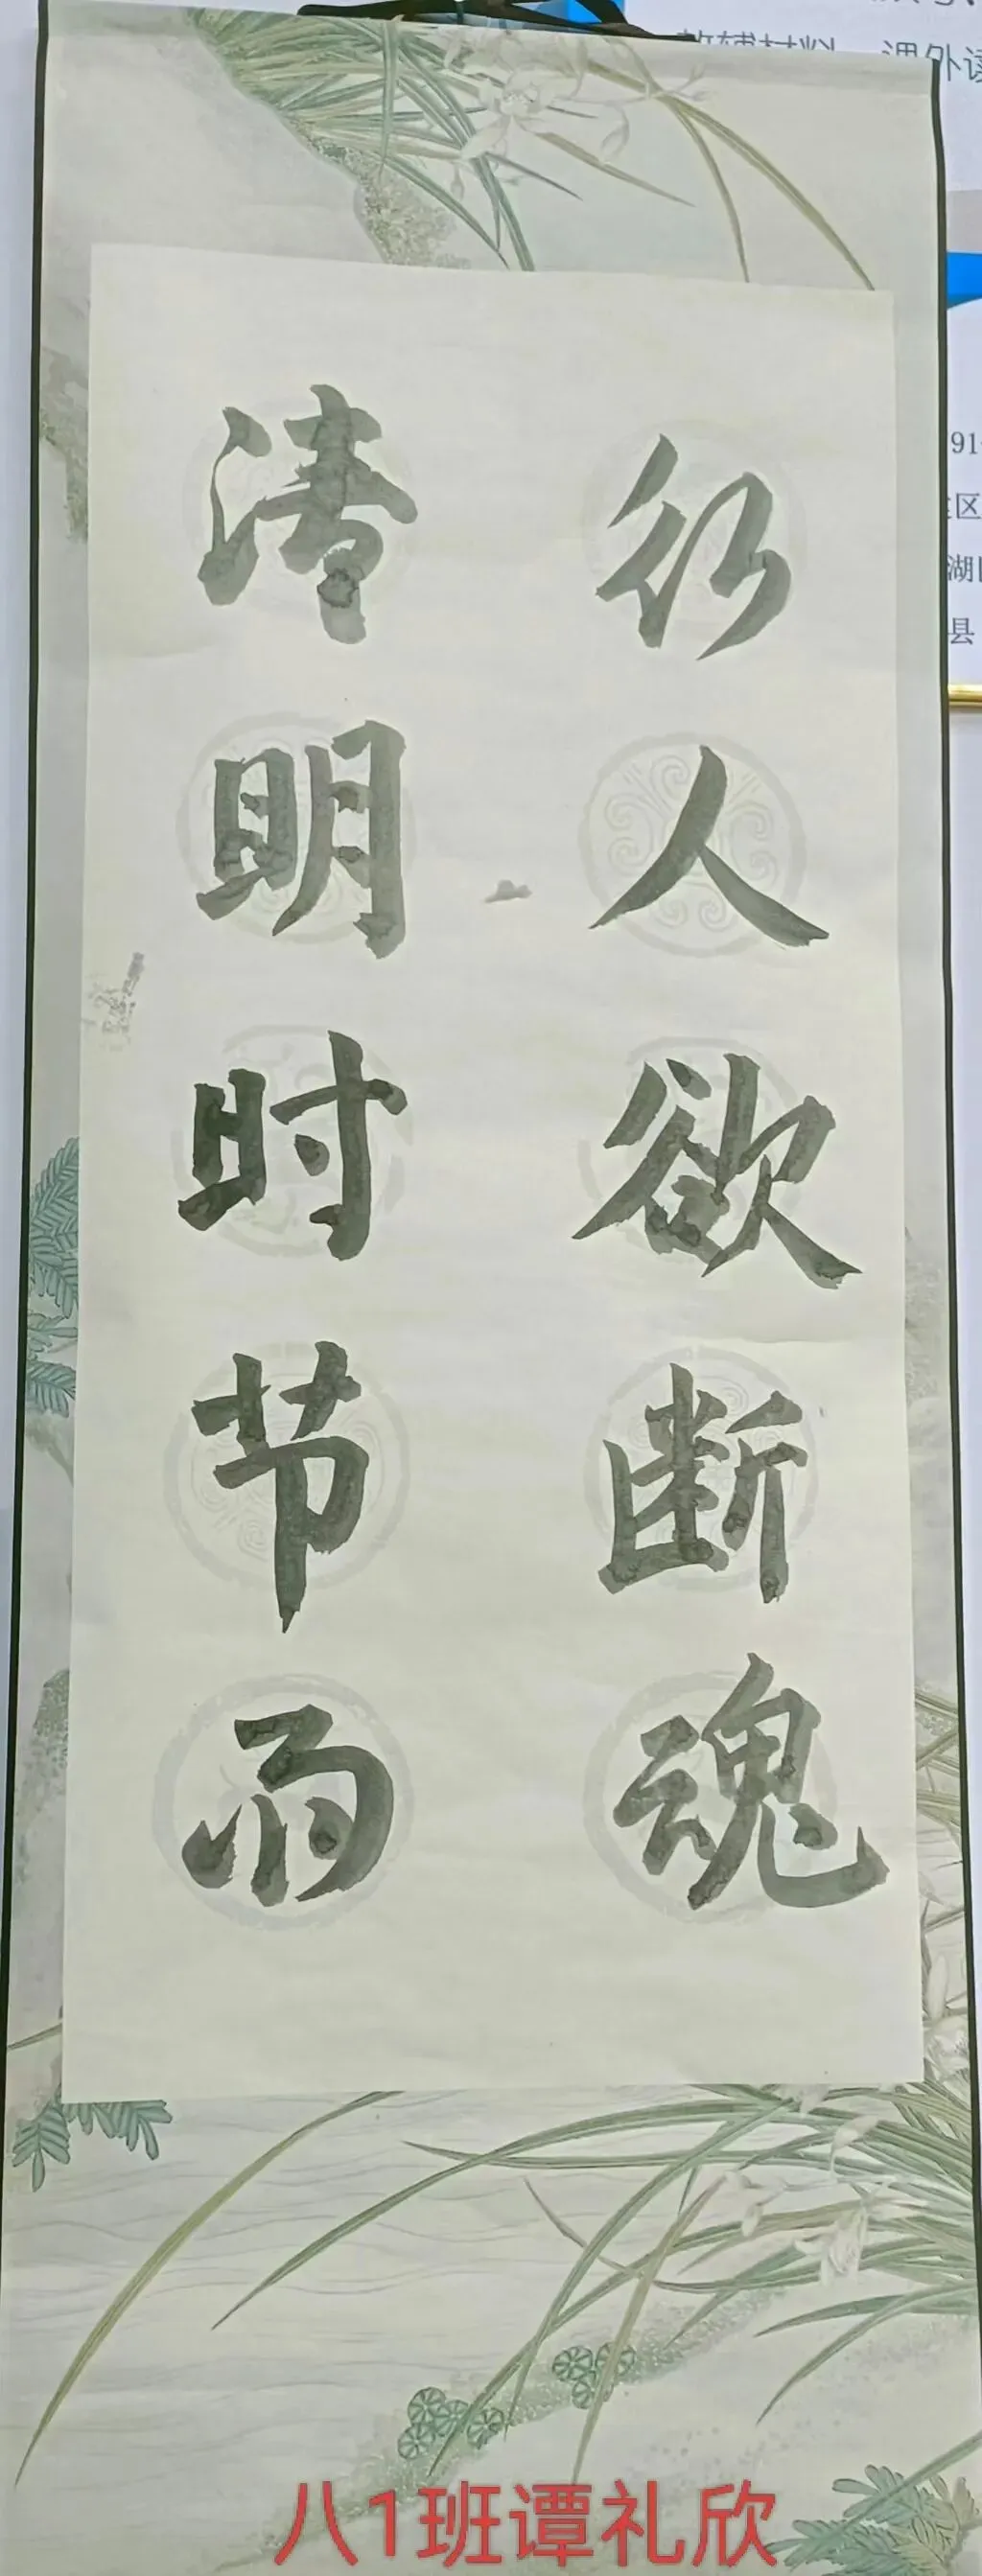 清明时节雨
行人欲断魂
课外读
91
区
湖
县
八1班谭礼欣